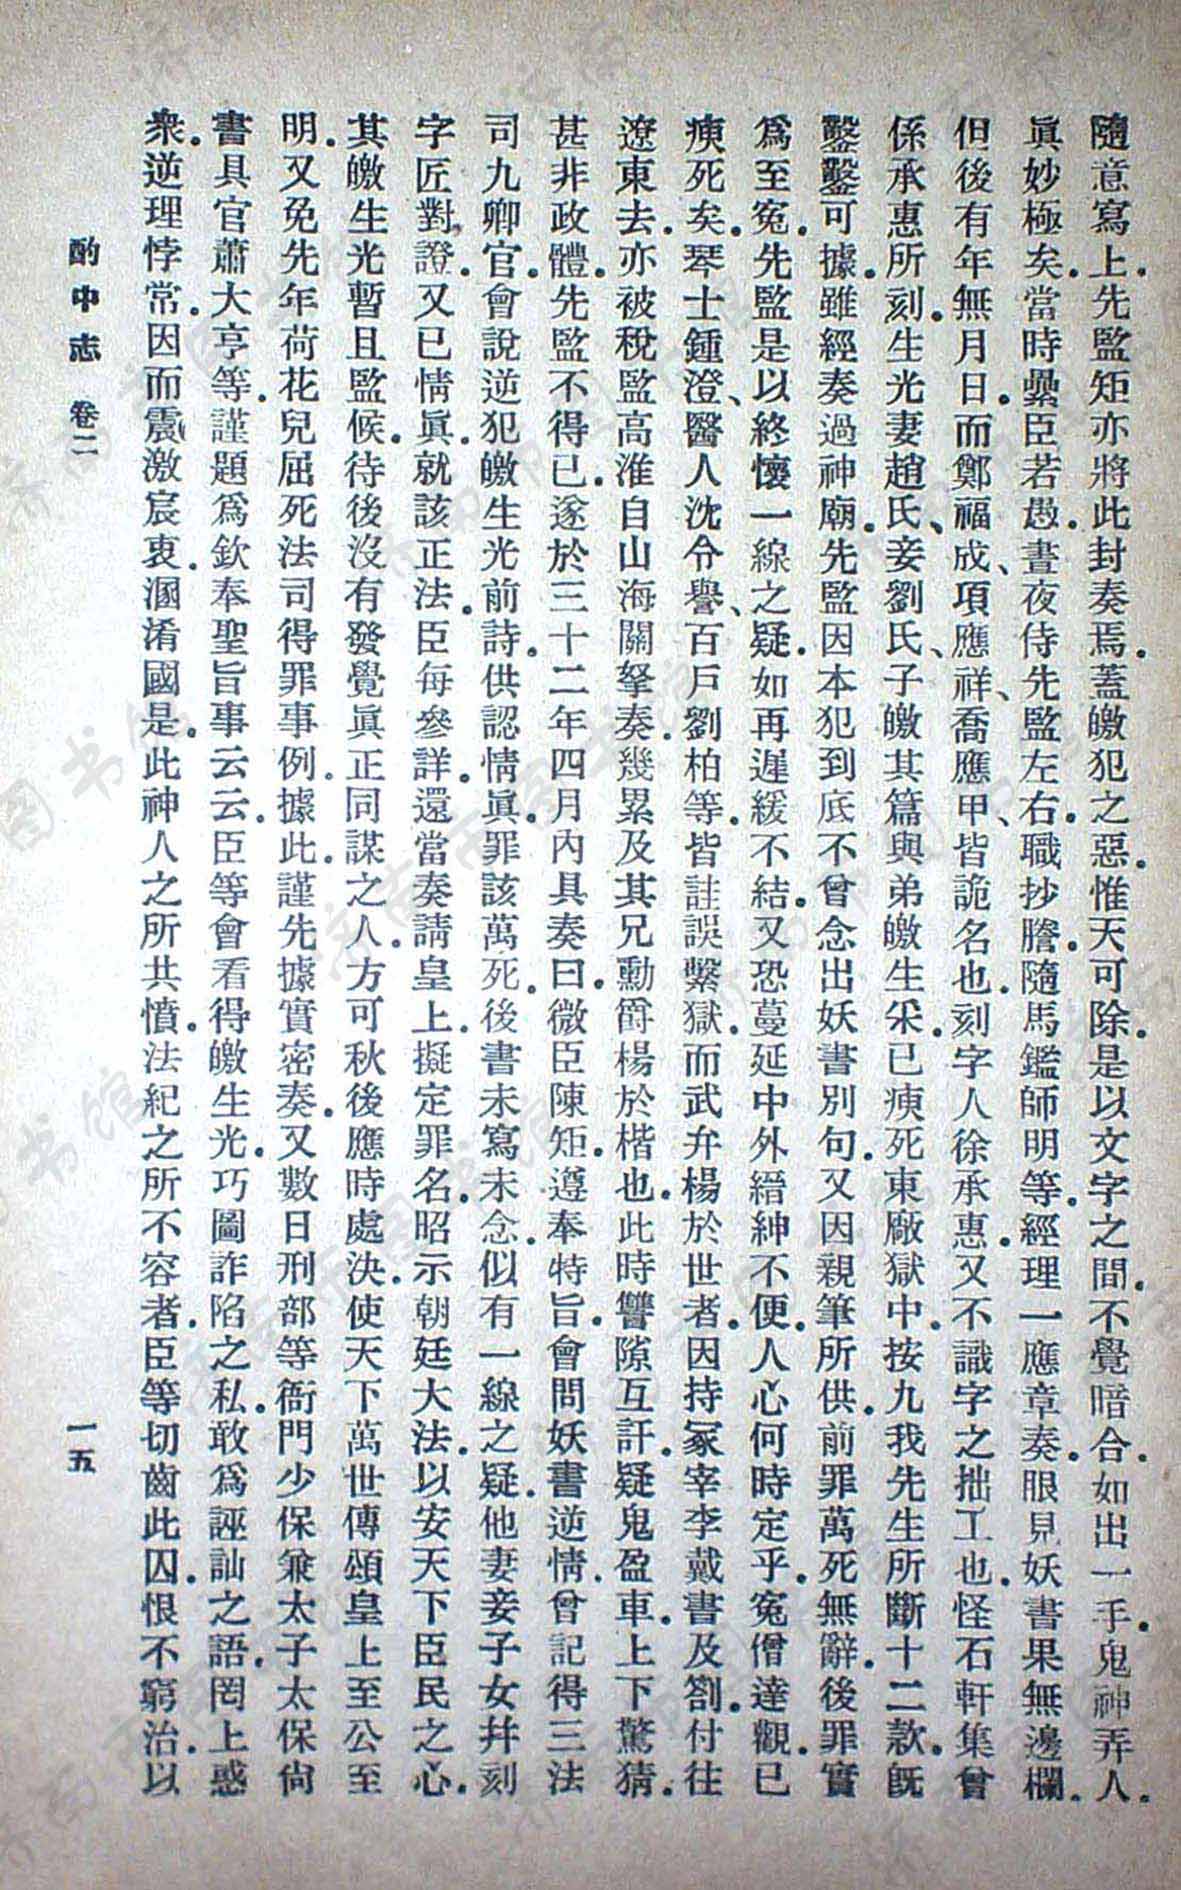 隨意寫上。先監矩亦將此封奏焉。蓋皦犯之惡。惟天可除。是以文字之間。不覺暗合。如出一手。鬼神弄人。
眞妙極矣。當時纍臣若愚。晝夜侍先監左右。職抄謄。隨馬鑑師明等。經理一應章奏。眼見妖書果無邊欄。
但後有年無月日。而鄭福成、項應祥、喬應甲、皆詭名也。刻字人徐承惠。又不識字之拙工也。怪石軒集曾
係承惠所刻。生光妻趙氏、妾劉氏、子皦其篇與弟皦生采。已瘐死東廠獄中。按九我先生所斷十二款。旣
鑿鑿可據。雖經奏過神廟。先監因本犯到底不曾念出妖書別句。又因親筆所供。前罪萬死無辭。後罪實
爲至寃。先監是以終懷一線之疑。如再遲緩不結。又恐蔓延中外縉紳不便。人心何時定乎。寃僧達觀。已
瘐死矣。琴士鍾澄、醫人沈令譽、百戶劉柏等。皆註誤繫獄。而武弁楊於世者。因持冢宰李戴書及劄。付往
遼東去。亦被稅監高淮自山海關拏奏。幾累及其兄勳爵楊於楷也。此時讐隙互訐。疑鬼盈車。上下驚猜。
甚非政體。先監不得已。遂於三十二年四月內具奏曰。微臣陳矩。遵奉特旨。會問妖書逆情。曾記得三法
司九卿官。會說逆犯皦生光前詩。供認情眞。罪該萬死。後書未寫未念。似有一線之疑。他妻妾子女幷刻
字匠對證。又已情眞。就該正法。臣每參詳。還當奏請皇上。擬定罪名。昭示朝廷大法。以安天下臣民之心。
其皦生光暫且監候。待後沒有發覺眞正同謀之人。方可秋後應時處決。使天下萬世傳頌皇上至公至
明。又免先年荷花兒屈死法司得罪事例。據此。謹先據實密奏。又數日刑部等衙門少保兼太子太保尙
書具官蕭大亨等。謹題爲欽奉聖旨事云云。臣等會看得皦生光。巧圖詐陷之私。敢爲誣訕之語。罔上惑
衆。逆理悖常。因而震激宸衷。溷淆國是。此神人之所共憤。法紀之所不容者。臣等切齒此囚。恨不窮治。以
酌中志 卷二 一五